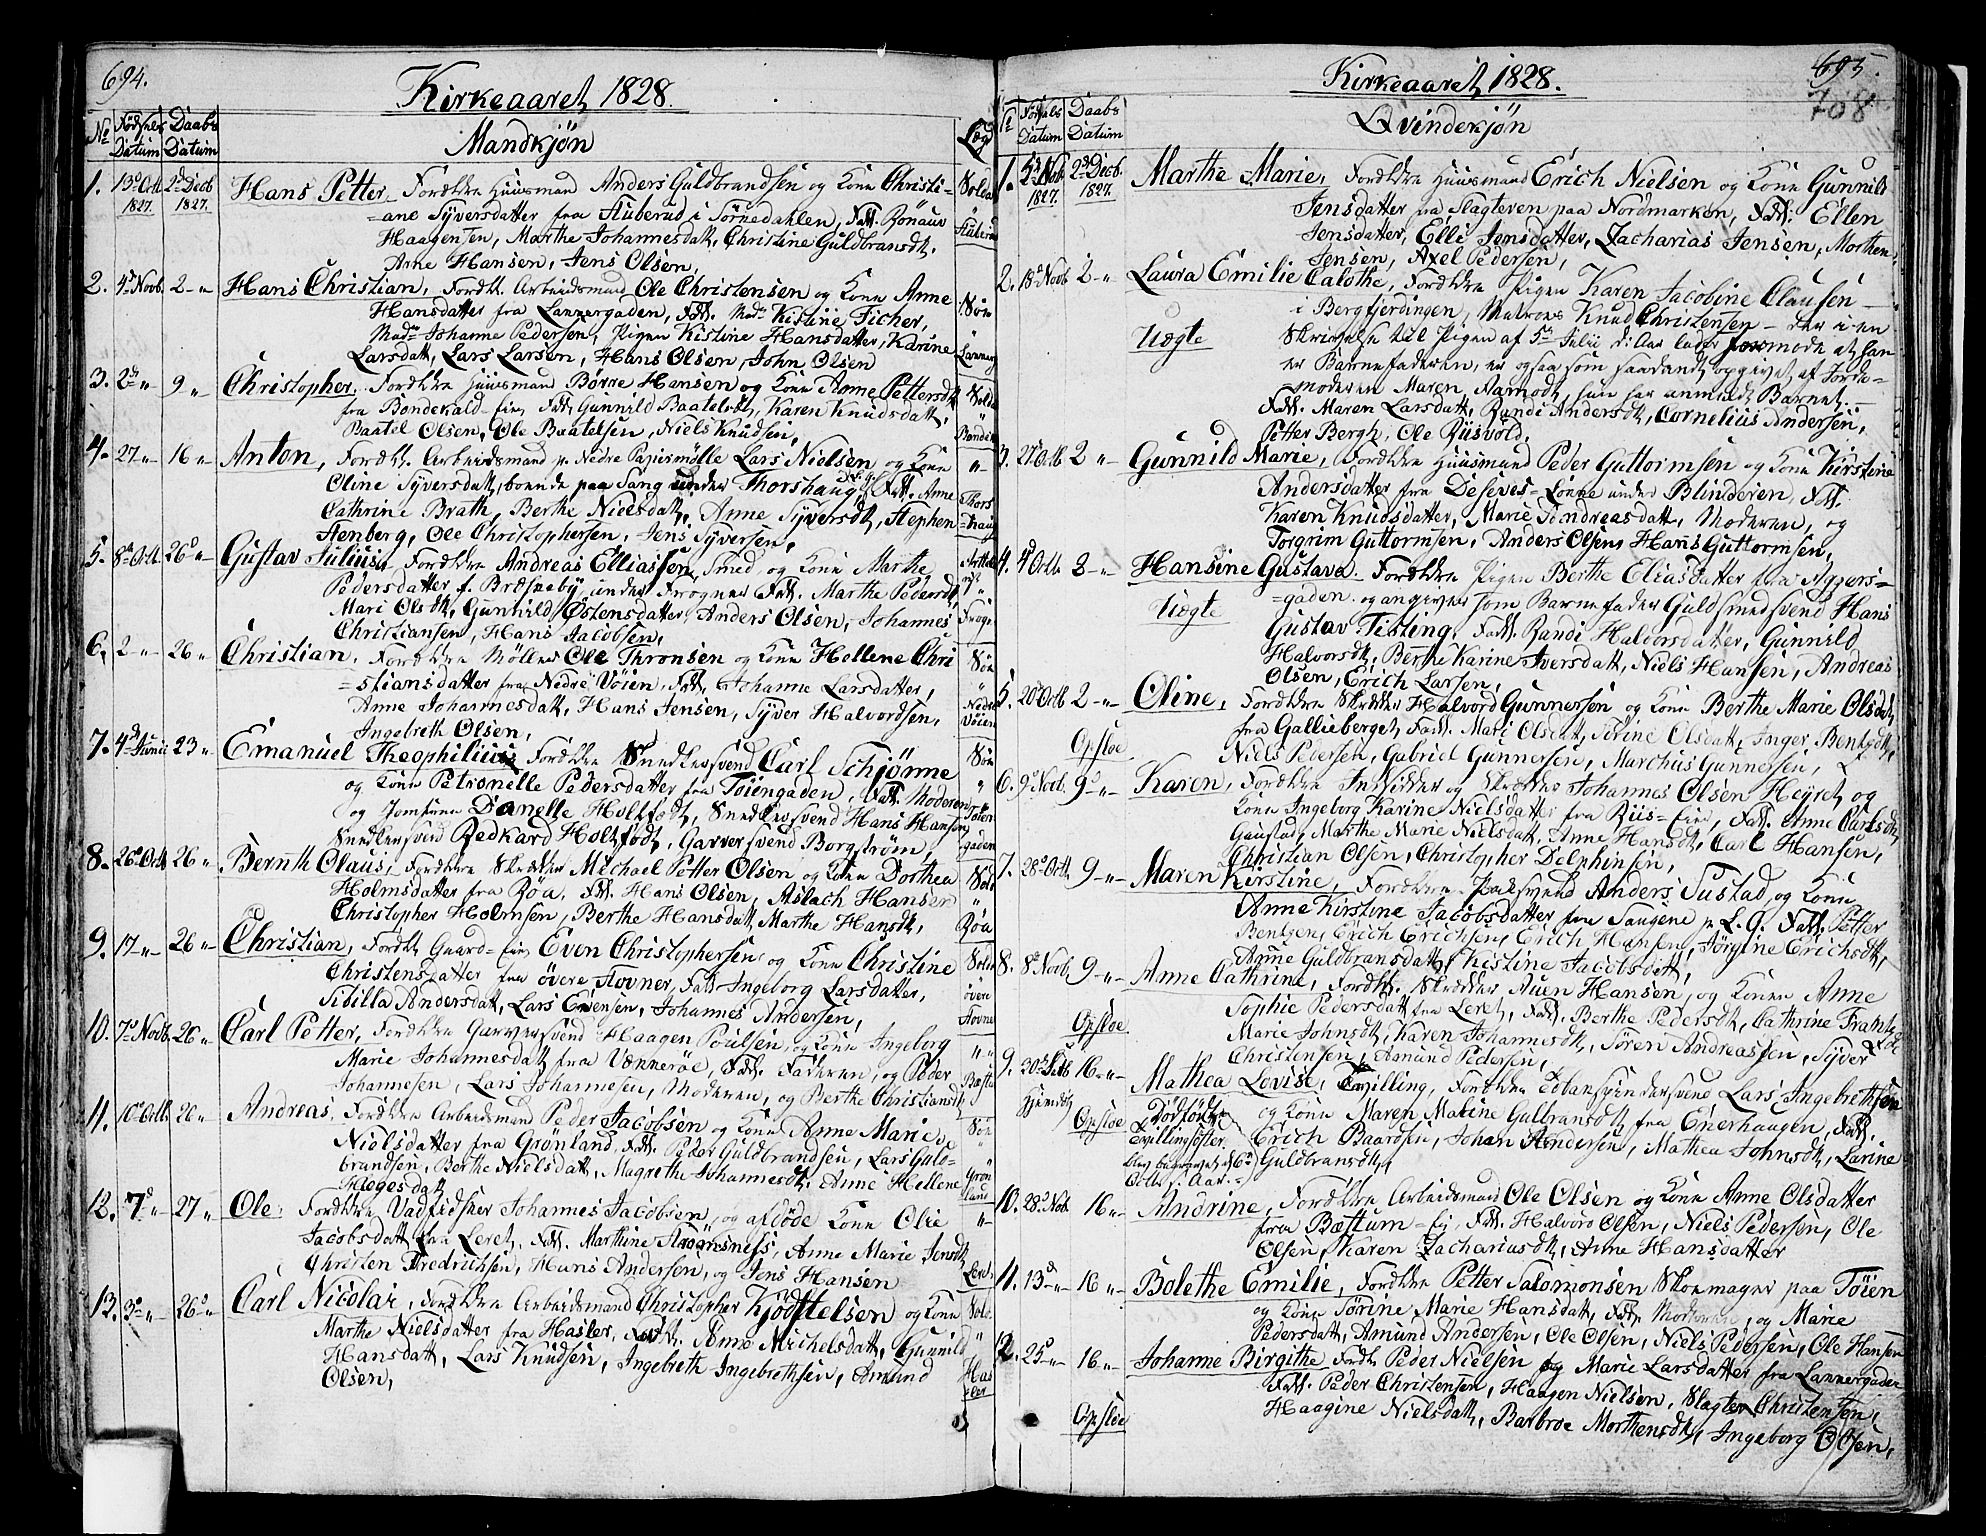 694.
Kirkeaaret 1828.
No Fødsels Datum Daabs Datum Mandkjøn Læg
1. 13d Octb 1827. 2d Decb 1827. Hans Petter, Forældre Huusmand Anders Guldbrandsen og Kone Christi-
=ane Syversdatter fra Stuberud i Sørkedahlen, Fadd.
Haagensen, Marthe Johannesdatt, Christine Guldbransdt,
Arne Hansen, Jens Olsen,
2. 4d Novb. 2 -"- Hans Christian, Forældre Arbeidsmand Ole Christensen og Kone Anne
Hansdatter fra Lannergaden, Fadd. Mad. Kistine Ficher,
Mad. Johanne Pedersen, Pigen Kistine Hansdatter, Karine
Larsdatt, Lars Larsen, Hans Olsen, John Olsen
3. 2d -"- 9 -"- Christopher, Forældre Huusmand Børre Hansen og Kone Anne Pettersdt
fra Bondekald-Eie, Fadd. Gunnild Baatelsdt, Karen Knudsdatt,
Baatel Olsen, Ole Baatelsen, Niels Knudsen,
4. 27 -"- 16 -"- Anton, Forældre Arbeidsmand p. Nedre Papiermølle Lars Nielsen og Kone
Oline Syversdatt, boende paa Sang under Thorshaug, Fadd. Anne
Cathrine Brath, Berthe Nielsdatt, Anne Syversdt, Stephen
Stenberg, Ole Christophersen, Jens Syversen,
5. 8d Octb. 26d -"- Gustav Julius, Forældre Andreas Elliassen, Smed, og Kone Marthe
Pedersdatter f. Bræsneby under Frogner Fadd. Marthe Pedersdt,
Mari Olsdt, Gunnild Østensdatter, Anders Olsen, Johannes
Christiansen, Hans Jacobsen,
6. 2 -"- 26 -"- Christian, Forældre Møller Ole Thronsen og Kone Hellene Chri
=stiansdatter fra Nedre Vøien, Fadd. Johanne Larsdatter,
Anne Johannesdatt, Hans Jensen, Syver Halvordsen,
Ingebreth Olsen,
7. 4d Junii 23 -"- Emanuel Theophilius, Forældre Snedkersvend Carl Schjønne
og Kone Petronelle Pedersdatter fra Tøiengaden, Fadd. Moderen
og Jomfrue Danelle Holtfodt, Snedkersvend Hans Hansen
Snedkersvend Redkard Holtfodt, Garversvend Borgstrøm,
8. 26d Octb 26 -"- Bernth Claus, Forældre Skrædder Michael Petter Olsen og Kone Dorthea
Holmsdatter fra Røa, Fadd. Hans Olsen, Aslach Hansen
Christopher Holmsen, Berthe Hansdatt, Marthe Hansdt,
9. 17 -"- 26 -"- Christian, Forældre Gaard-Eier Even Christophersen og Kone Christine
Christensdatter fra övere Stovner, Fadd. Ingeborg Larsdatter,
Sibilla Andersdatt, Lars Evensen, Johannes Andersen,
10. 7d Novb. 26 -"- Carl Petter, Forældre Garversvend Haagen Poulsen, og Kone Ingeborg
Marie Johannesdatt fra Vønnerøe, Fadd. Faderen, og Peder
Johannesen, Lars Johannesen, Moderen, og Berthe Christiansdt
11. 10d Octb. 26 -"- Andreas, Forældre Arbeidsmand Peder Jacobsen og Kone Anne Marie
Nielsdatter fra Grønland, Fadd. Peder Guldbrandsen, Lars Guld=
brandsen, Berthe Nielsdatt, Magrethe Johannesdt, Anne Hellene
12. 7d -"- 27 -"- Ole, Forældre Johannes Jacobsen, og afdöde Kone Olie
Jacobsdatt fra Leret, Fadd. Marthine Strømsness, Anne Marie Jensdt
Christen Fredrichsen, Hans Andersen, og Jens Hansen
13. 3d -"- 26d -"- Carl Nicolai, Forældre Arbeidsmand Christopher Kjödttelsen og Kone
Marthe Nielsdatter fra Hasler, Fadd. Anne Michelsdatt, Gunnild
Hansdatt, Lars Knudsen, Ingebreth Ingebrethsen, Amund
Olsen,
695.
708
Kirkeaaret 1828.
Fødsels Datum Daabs Datum Qvindekjön
1. 5d Novb. 1827. 2d Decb. 1827. Marthe Marie, Forældre Huusmand Erich Nielsen og Kone Gunnild
Jensdatter fra Slagteren paa Nordmarken, Fadd. Ellen
Jensdatter, Elli Jensdatter, Zacharias Jensen, Morthen
Jensen, Axel Pedersen,
2. 18d Novb 2 -"- Laura Emilie Calothe, Forældre Pigen Karen Jacobine Clausen -
i Bergfjerdingen, Matros Knud Christensen - der i en
Uægte Skrivelse til Pigen af 5te Julii d: Aar lader formode at han
er Barnefaderen, er ogsaa som saadan opgivet af Jorde=
moderen Maren Aamodt, hun har anmeldt Barnet. -
Fadd. Maren Larsdatt, Randi Andersdt, Cornelius Andersen,
Petter Bergh, Ole Riisvold,
3. 27d Octb 2 -"- Gunnild Marie, Forældre Huusmand Peder Guttormsen og Kone Kirstine
Andersdatter fra Deseves=Lönne under Blinderen, Fadd.
Karen Knudsdatter, Marie Andreasdatt, Moderen, og
Torgrim Guttormsen, Anders Olsen, Hans Guttormsen,
4. 4d Octb. 2 -"- Hansine Gustava. Forældre Pigen Berthe Eliasdatter fra Aggers=
=gaden og angiver som Barnefader Guldsmedsvend Hans
Uægte Gustav Tisling, Fadd. Randi Haldorsdatter, Gunnild
Halvorsdt, Berthe Karine Iversdatt, Niels Hansen, Andreas
Olsen, Erich Larsen,
5. 20d Octb 2 -"- Oline, Forældre Skrædder Halvord Gunnersen og Kone Berthe Marie Olsdatt
fra Gallieberget, Fadd. Mari Olsdatt, Serine Olsdatt, Inger Bentsdt,
Opsloe Niels Pedersen, Gabriel Gunnersen, Marthus Gunnersen,
6. 9d Novb. 9d -"- Karen, Forældre Inderster og Skrædder Johannes Olsen Heyret og
Kone Ingeborg Karine Nielsdatter fra Riis-Eie, Fadd. Anne Carlsdt,
Gaustad, Marthe Marie Nielsdatt, Anne Hansdt, Carl Hansen,
Christian Olsen, Christopher Delphinsen,
7. 28d Octb. 9 -"- Maren Kirstine, Forældre Anders Sustad og Kone
Anne Kirstine Jacobsdatter fra Saugene p. L. G. Fadd. Petter
Bentsen, Erich Erichsen, Erich Hansen, Jørgine Erichsdt,
Anne Guldbransdatt, Kistine Jacobsdatt,
8. 8d Novb. 9 -"- Anne Cathrine, Forældre Skrædder Auen Hansen, og Konen Anne
Sophie Pedersdatt fra Leret, Fadd. Berthe Pedersdt, Cathrine Frantz
Opsloe. Marie Johnsdt, Karen Johannesdt, Søren Andreassen, Syver
Christensen, Asmund Pedersen,
9. 30d Octb 16 -"- Mathea Lovise, Tvilling, Forældre Tobakspindersvend Lars Ingebrethsen
Hjemdbt Opsloe og Kone Maren Matine Gulbransdt fra Enerhaugen, Fadd.
Dödfödt Tvillingsöster Erich Baardsen, Johan Andersen, Mathea Johnsdt, Larine
blev begravet d. 6d Guldbransdt,
Octb. s. Aar. -
10. 28d Nob. 16 -"- Andrine, Forældre Arbeidsmand Ole Olsen og Kone Anne Olsdatter
fra Bæstum=Eje, Fadd. Halvord Olsen, Niels Pedersen, Ole
Olsen, Karen Zachariasdt, Anne Hansdatter
11. 13d -"- 16 -"- Bolethe Emilie, Forældre Petter Salomonsen Skoemager paa Tøien
og Kone Sørine Marie Hansdatt, Fadd. Moderen, og Marie
Pedersdatt, Amund Andersen, Ole Olsen, Niels Pedersen, Ole Hansen
12. 25d -"- 16 -"- Johanne Birgithe Forældre Peder Nielsen og Marie Larsdatter fra Lannergaden
Fadd. Peder Christensen, Haagen Nielsen, Slagter Christensen,
Opsloe Haagine Nielsdatt, Barbroe Morthensdt, Ingeborg Olsen,